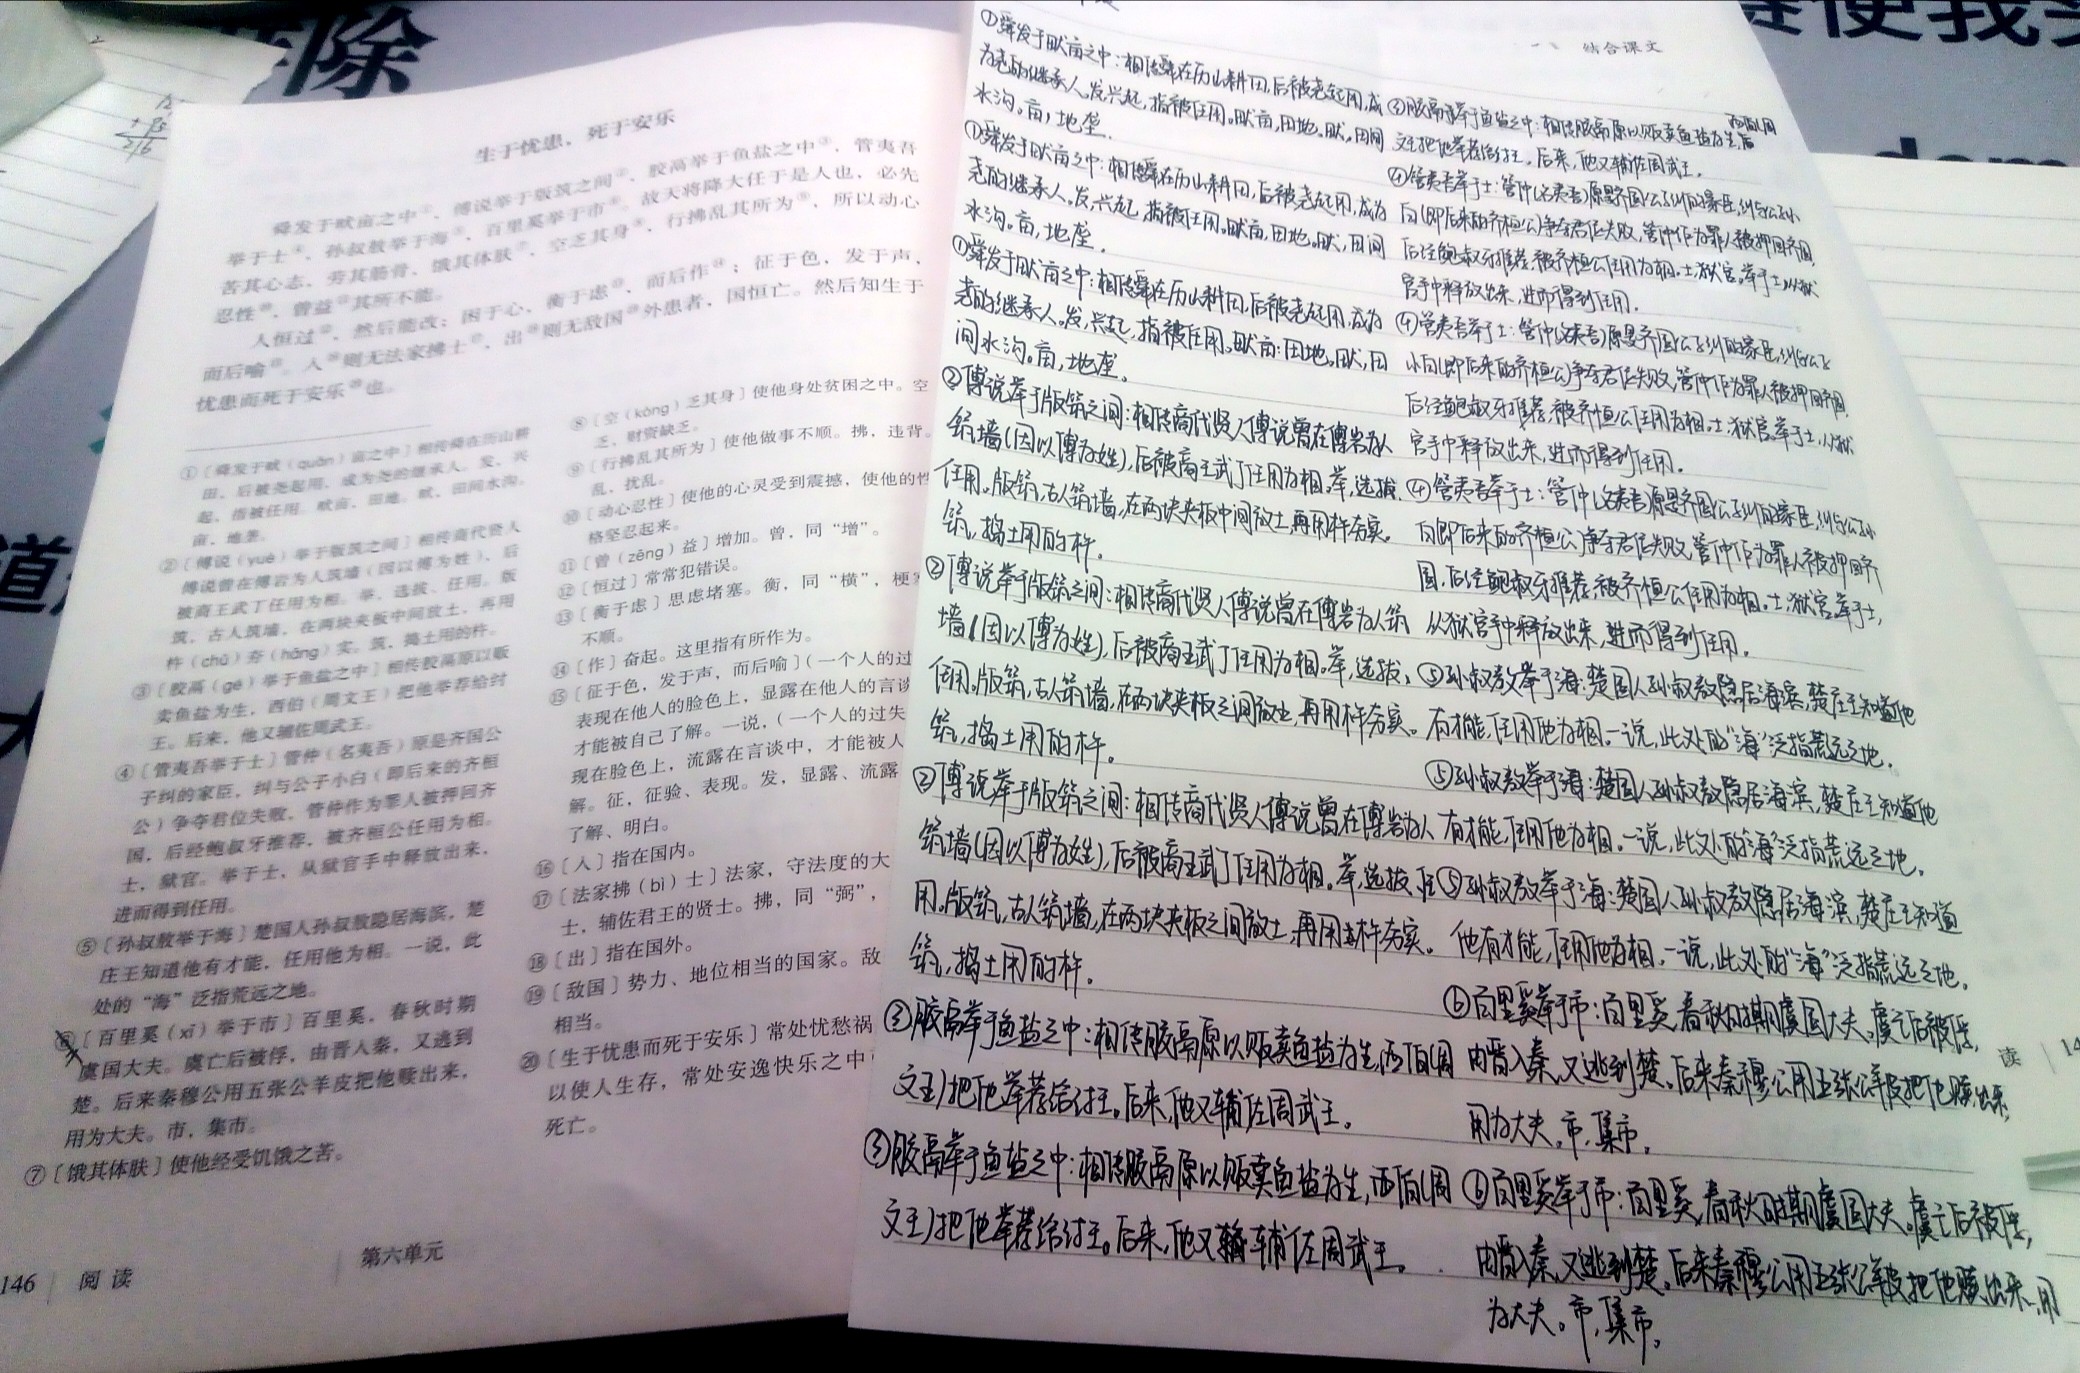 除
生于忧患，死于安乐
舜发于畎亩之中①，傅说举于版筑之间②，胶鬲举于鱼盐之中③，管夷吾
举于士④，孙叔敖举于海⑤，百里奚举于市⑥。故天将降大任于是人也，必先
苦其心志，劳其筋骨，饿其体肤⑦，空乏其身⑧，行拂乱其所为⑨，所以动心
忍性⑩，曾益⑪其所不能。
人恒过⑫，然后能改；困于心，衡于虑⑬，而后作⑭；征于色，发于声，
而后喻⑮。入⑯则无法家拂士⑰，出⑱则无敌国⑲外患者，国恒亡。然后知生于
忧患而死于安乐⑳也。
①〔舜发于畎（quǎn）亩之中〕相传舜在历山耕
田，后被尧起用，成为尧的继承人。发，兴
起，指被任用。畎亩，田地。畎，田间水沟。
亩，地垄。
②〔傅说（yuè）举于版筑之间〕相传商代贤人
傅说曾在傅岩为人筑墙（因以傅为姓），后
被商王武丁任用为相。举，选拔、任用。版
筑，古人筑墙，在两块夹板中间放土，再用
杵（chǔ）夯（hāng）实。筑，捣土用的杵。
③〔胶鬲（gé）举于鱼盐之中〕相传胶鬲原以贩
卖鱼盐为生，西伯（周文王）把他举荐给纣
王。后来，他又辅佐周武王。
④〔管夷吾举于士〕管仲（名夷吾）原是齐国公
子纠的家臣，纠与公子小白（即后来的齐桓
公）争夺君位失败，管仲作为罪人被押回齐
国，后经鲍叔牙推荐，被齐桓公任用为相。
士，狱官。举于士，从狱官手中释放出来，
进而得到任用。
⑤〔孙叔敖举于海〕楚国人孙叔敖隐居海滨，楚
庄王知道他有才能，任用他为相。一说，此
处的“海”泛指荒远之地。
⑥〔百里奚（xī）举于市〕百里奚，春秋时期
虞国大夫。虞亡后被俘，由晋入秦，又逃到
楚。后来秦穆公用五张公羊皮把他赎出来，
用为大夫。市，集市。
⑦〔饿其体肤〕使他经受饥饿之苦。
⑧〔空（kòng）乏其身〕使他身处贫困之中。空
乏，财资缺乏。
⑨〔行拂乱其所为〕使他做事不顺。拂，违背。
乱，扰乱。
⑩〔动心忍性〕使他的心灵受到震撼，使他的性
格坚忍起来。
⑪〔曾（zēng）益〕增加。曾，同“增”。
⑫〔恒过〕常常犯错误。
⑬〔衡于虑〕思虑堵塞。衡，同“横”，梗
不顺。
⑭〔作〕奋起。这里指有所作为。
⑮〔征于色，发于声，而后喻〕（一个人的过
表现在他人的脸色上，显露在他人的言谈
才能被自己了解。一说，（一个人的过失
现在脸色上，流露在言谈中，才能被人
解。征，征验、表现。发，显露、流露
了解、明白。
⑯〔入〕指在国内。
⑰〔法家拂（bì）士〕法家，守法度的大
士，辅佐君王的贤士。拂，同“弼”，
⑱〔出〕指在国外。
⑲〔敌国〕势力、地位相当的国家。敌
相当。
⑳〔生于忧患而死于安乐〕常处忧愁祸
以使人生存，常处安逸快乐之中
死亡。
146 阅读
第六单元
①舜发于畎亩之中：相传舜在历山耕田，后被尧起用，成
为尧的继承人。发，兴起，指被任用。畎亩，田地。畎，田间
水沟。亩，地垄。
①舜发于畎亩之中：相传舜在历山耕田，后被尧起用，成为
尧的继承人。发，兴起，指被任用。畎亩，田地。畎，田间
水沟。亩，地垄。
①舜发于畎亩之中：相传舜在历山耕田，后被尧起用，成为
尧的继承人。发，兴起，指被任用。畎亩：田地。畎，田
间水沟。亩，地垄。
②傅说举于版筑之间：相传商代贤人傅说曾在傅岩为人
筑墙（因以傅为姓），后被商王武丁任用为相。举，选拔、
任用。版筑，古人筑墙，在两块夹板中间放土，再用杵夯实。
筑，捣土用的杵。
②傅说举于版筑之间：相传商代贤人傅说曾在傅岩为人筑
墙（因以傅为姓），后被商王武丁任用为相。举，选拔、
任用。版筑，古人筑墙，在两块夹板之间放土，再用杵夯实。
筑，捣土用的杵。
②傅说举于版筑之间：相传商代贤人傅说曾在傅岩为人
筑墙（因以傅为姓），后被商王武丁任用为相。举，选拔 任
用。版筑，古人筑墙，在两块夹板之间放土，再用杵夯实。
筑，捣土用的杵。
③胶鬲举于鱼盐之中：相传胶鬲原以贩卖鱼盐为生，西伯（周
文王）把他举荐给纣王。后来，他又辅佐周武王。
③胶鬲举于鱼盐之中：相传胶鬲原以贩卖鱼盐为生，西伯（周
文王）把他举荐给纣王。后来，他又辅佐周武王。
一八 结合课文
③胶鬲举于鱼盐之中：相传胶鬲原以贩卖鱼盐为生，后
西伯（周
文王把他举荐给纣王。后来，他又辅佐周武王。
④管夷吾举于士：管仲（名夷吾）原是齐国公子纠的家臣，纠与公子小
白（即后来的齐桓公）争夺君位失败，管仲作为罪人被押回齐国，
后经鲍叔牙推荐，被齐桓公任用为相。士，狱官。举于士，从狱
官手中释放出来，进而得到任用。
④管夷吾举于士：管仲（名夷吾）原是齐国公子纠的家臣，纠与公子
小白（即后来的齐桓公）争夺君位失败，管仲作为罪人被押回齐国，
后经鲍叔牙推荐，被齐桓公任用为相。士，狱官。举于士，从狱
官手中释放出来，进而得到任用。
④管夷吾举于士：管仲（名夷吾）原是齐国公子纠的家臣，纠与公子小
白即后来的齐桓公）争夺君位失败，管仲作为罪人被押回齐
国，后经鲍叔牙推荐，被齐桓公任用为相。士，狱官。举于士，
从狱官手中释放出来，进而得到任用。
⑤孙叔敖举于海：楚国人孙叔敖隐居海滨，楚庄王知道他
有才能，任用他为相。一说，此处的“海”泛指荒远之地。
⑤孙叔敖举于海：楚国人孙叔敖隐居海滨，楚庄王知道他
有才能，任用他为相。一说，此处的“海”泛指荒远之地。
⑤孙叔敖举于海：楚国人孙叔敖隐居海滨，楚庄王知道
他有才能，任用他为相。一说，此处的“海”泛指荒远之地。
⑥百里奚举于市：百里奚，春秋时期虞国大夫。虞亡后被俘，
由晋入秦，又逃到楚。后来秦穆公用五张公羊皮把他赎出来，
用为大夫。市，集市。
⑥百里奚举于市：百里奚，春秋时期虞国大夫。虞亡后被俘，
由晋入秦，又逃到楚。后来秦穆公用五张公羊皮把他赎出来，用
为大夫。市，集市。
使我
读 14
道